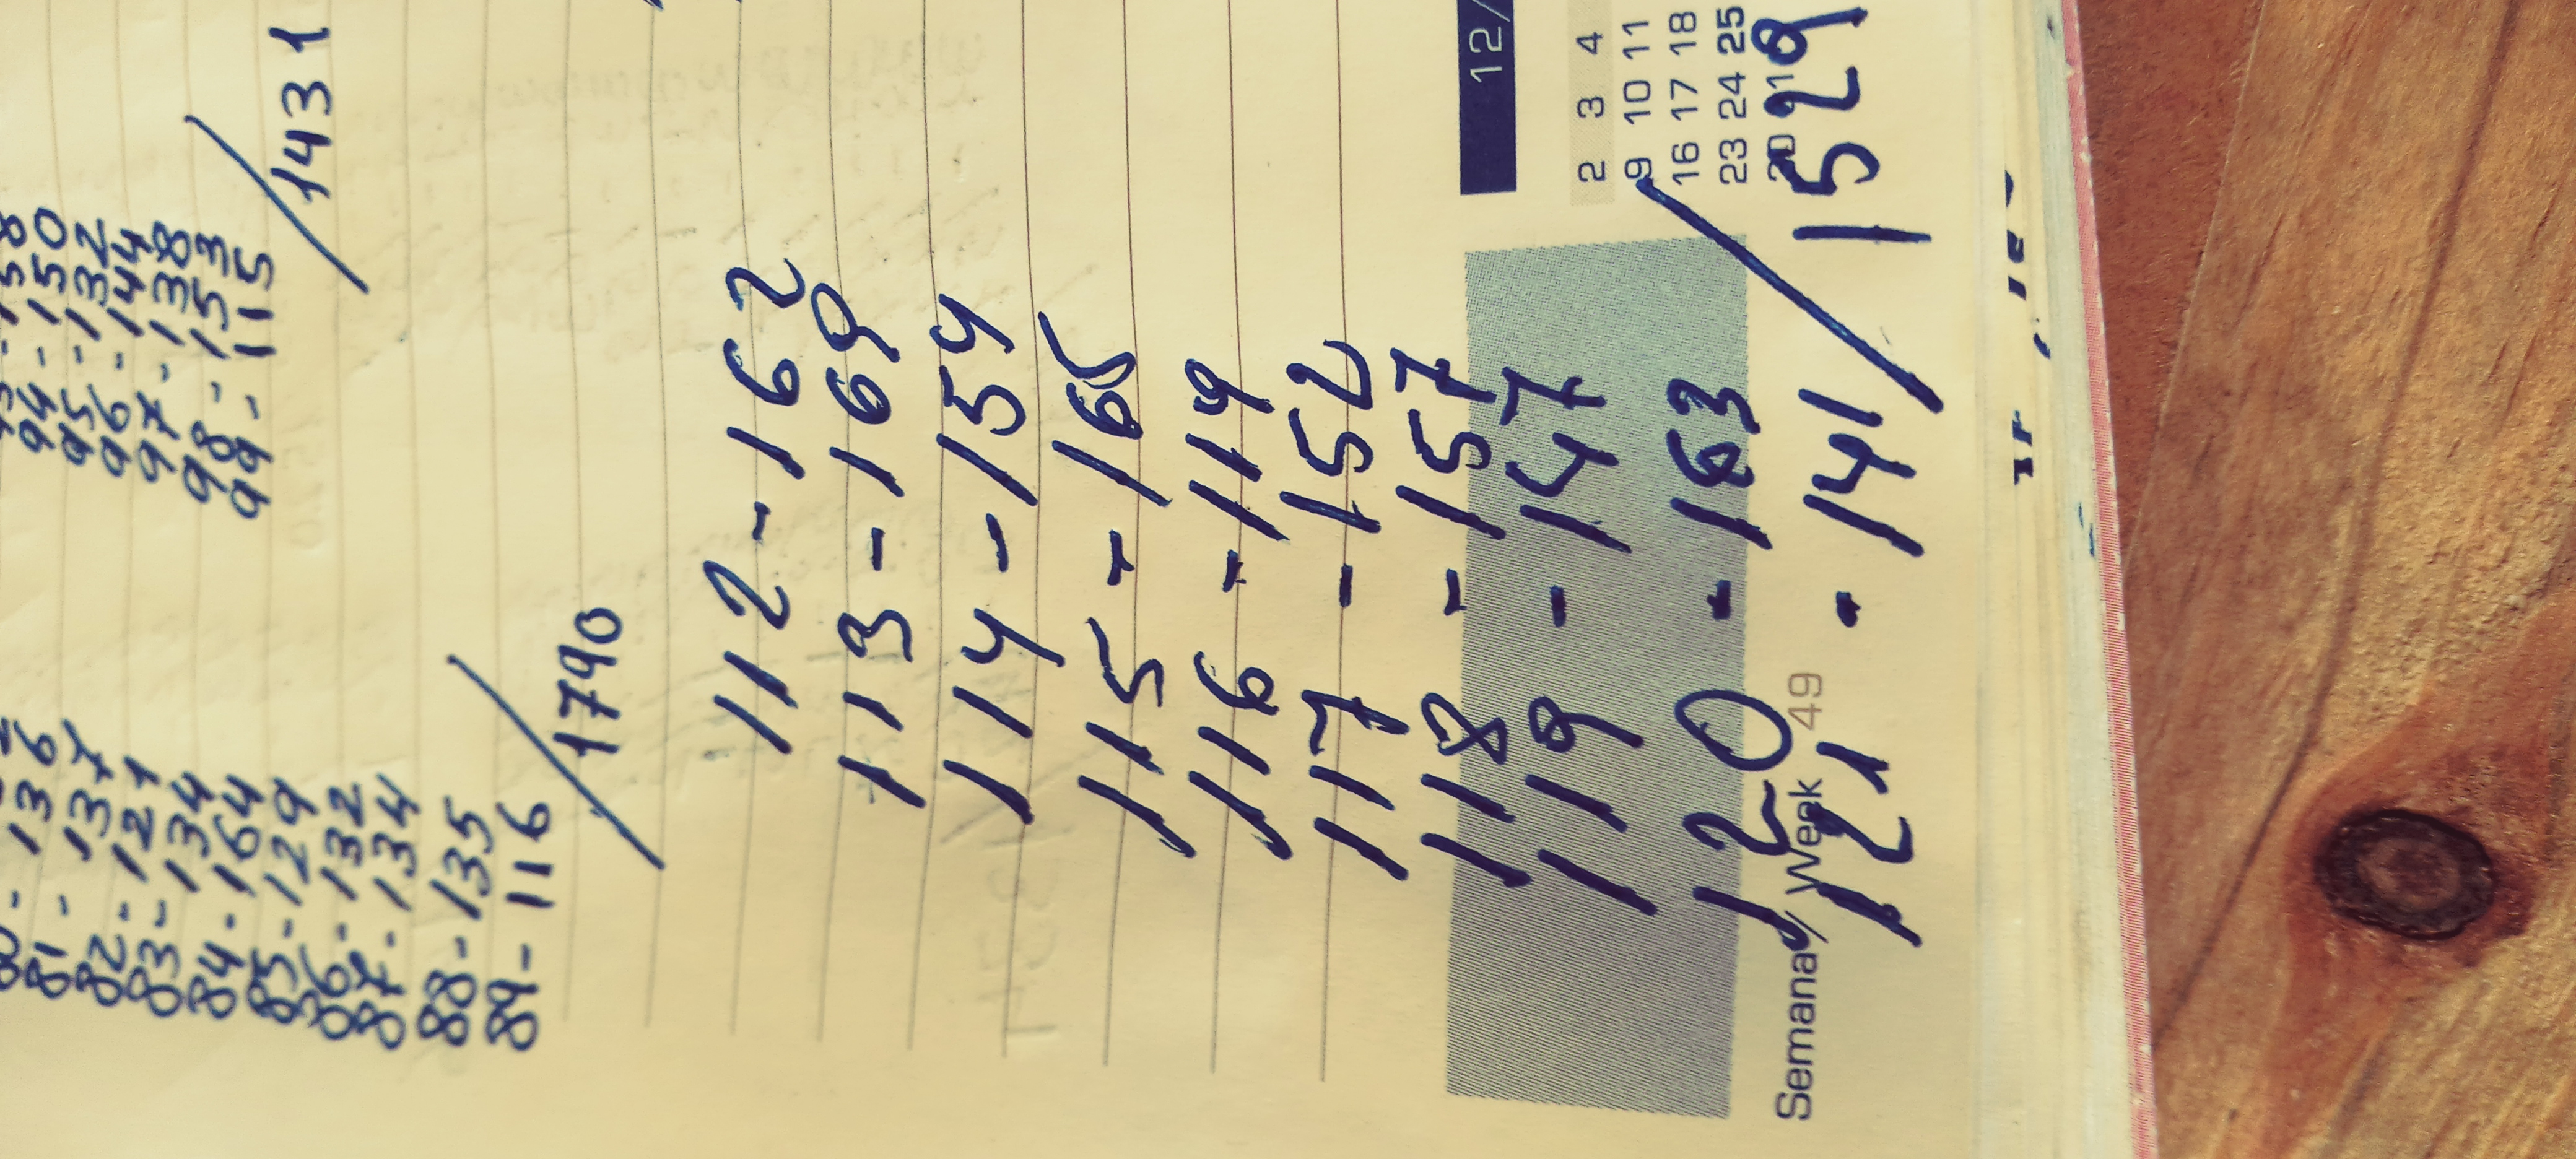 81 - 137
82 - 121
83 - 134
84 - 164
85 - 129
86 - 132
87 - 134
88 - 135
89 - 116
/1790
94 - 150
95 - 132
96 - 144
97 - 138
98 - 153
99 - 115
/1431
112 - 162
113 - 169
114 - 154
115 - 165
116 - 119
117 - 152
118 - 157
119 - 147
120 - 163
121 - 141 / 1529
12/
2 3 4
9 10 11
16 17 18
23 24 25
30 31
Semana / Week 49